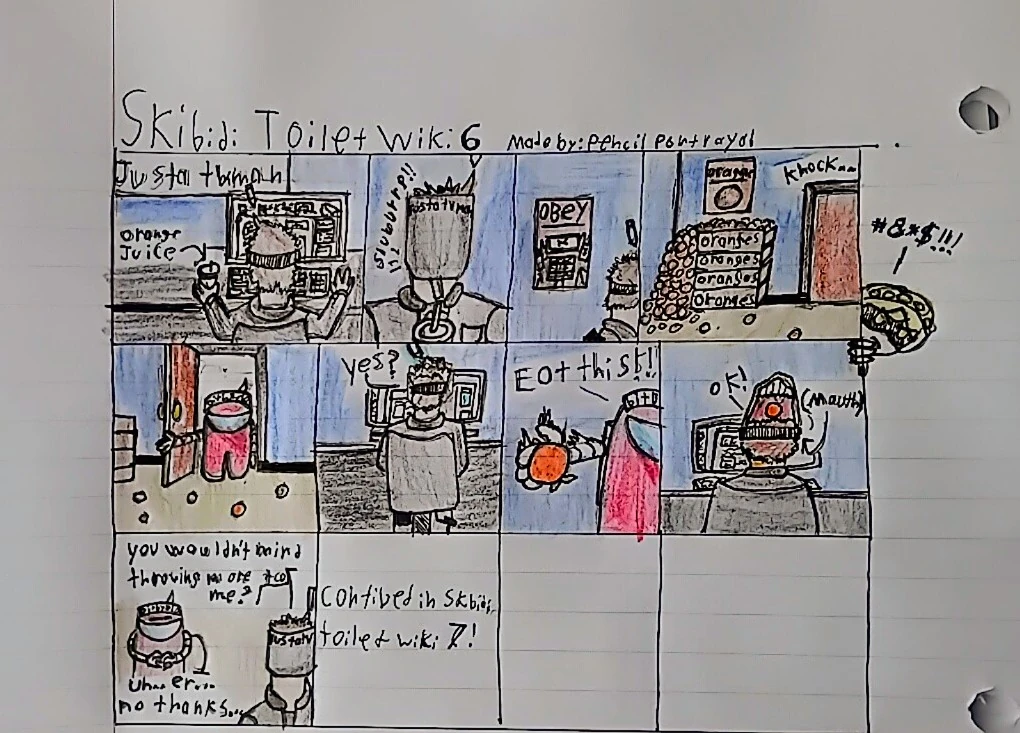 Skibidi Toilet Wiki 6 Made by: Pencil Portrayal
Justa tbmanh
orange
Juice
Sluburrp!!
ustatvma
OBEY
orange
oranges
oranges
oranges
oranges
knock...
#&*$!!!
yes?
Eat this!!!
OK!
(mouth)
you wouldn't mind
throwing more to
me?
ustatv
uh... er...
no thanks...
contived in Skbidi
toilet wiki 7!